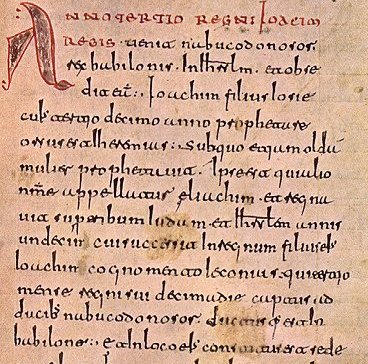 ANNO TERTIO REGNI IOACIM
REGIS · uenit nabucodonosor
rex babilonis · In ihrlm · et obse
dit eam : · Ioachim filius Iosie
cuius tertio decimo anno prophetare
orsus est iheremias : Sub quo etiam oldu
mulier prophetauit · Ipse est qui alio
nme appellatus est eliachim · et regna
uit super tribum Iuda · et ihrlem annis
undecim · cui successit In regnum filius eius
Ioachim cognomento Ieconias · qui tertio
mense regni sui decima die captus ad
ducib nabucodonosor ductus est In
babilone : · et In loco eius constitutus est sede